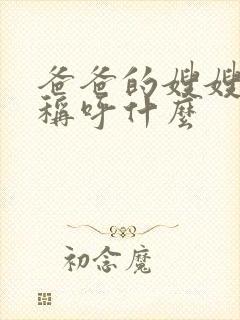 爸爸的嫂嫂
稱呼什麼
初念魔